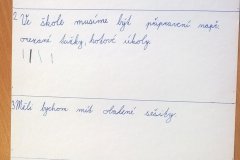 2. Ve škole musíme být připravení např.
ořezané tužky, hotové úkoly.
3. Měli bychom mít obalené sešity.